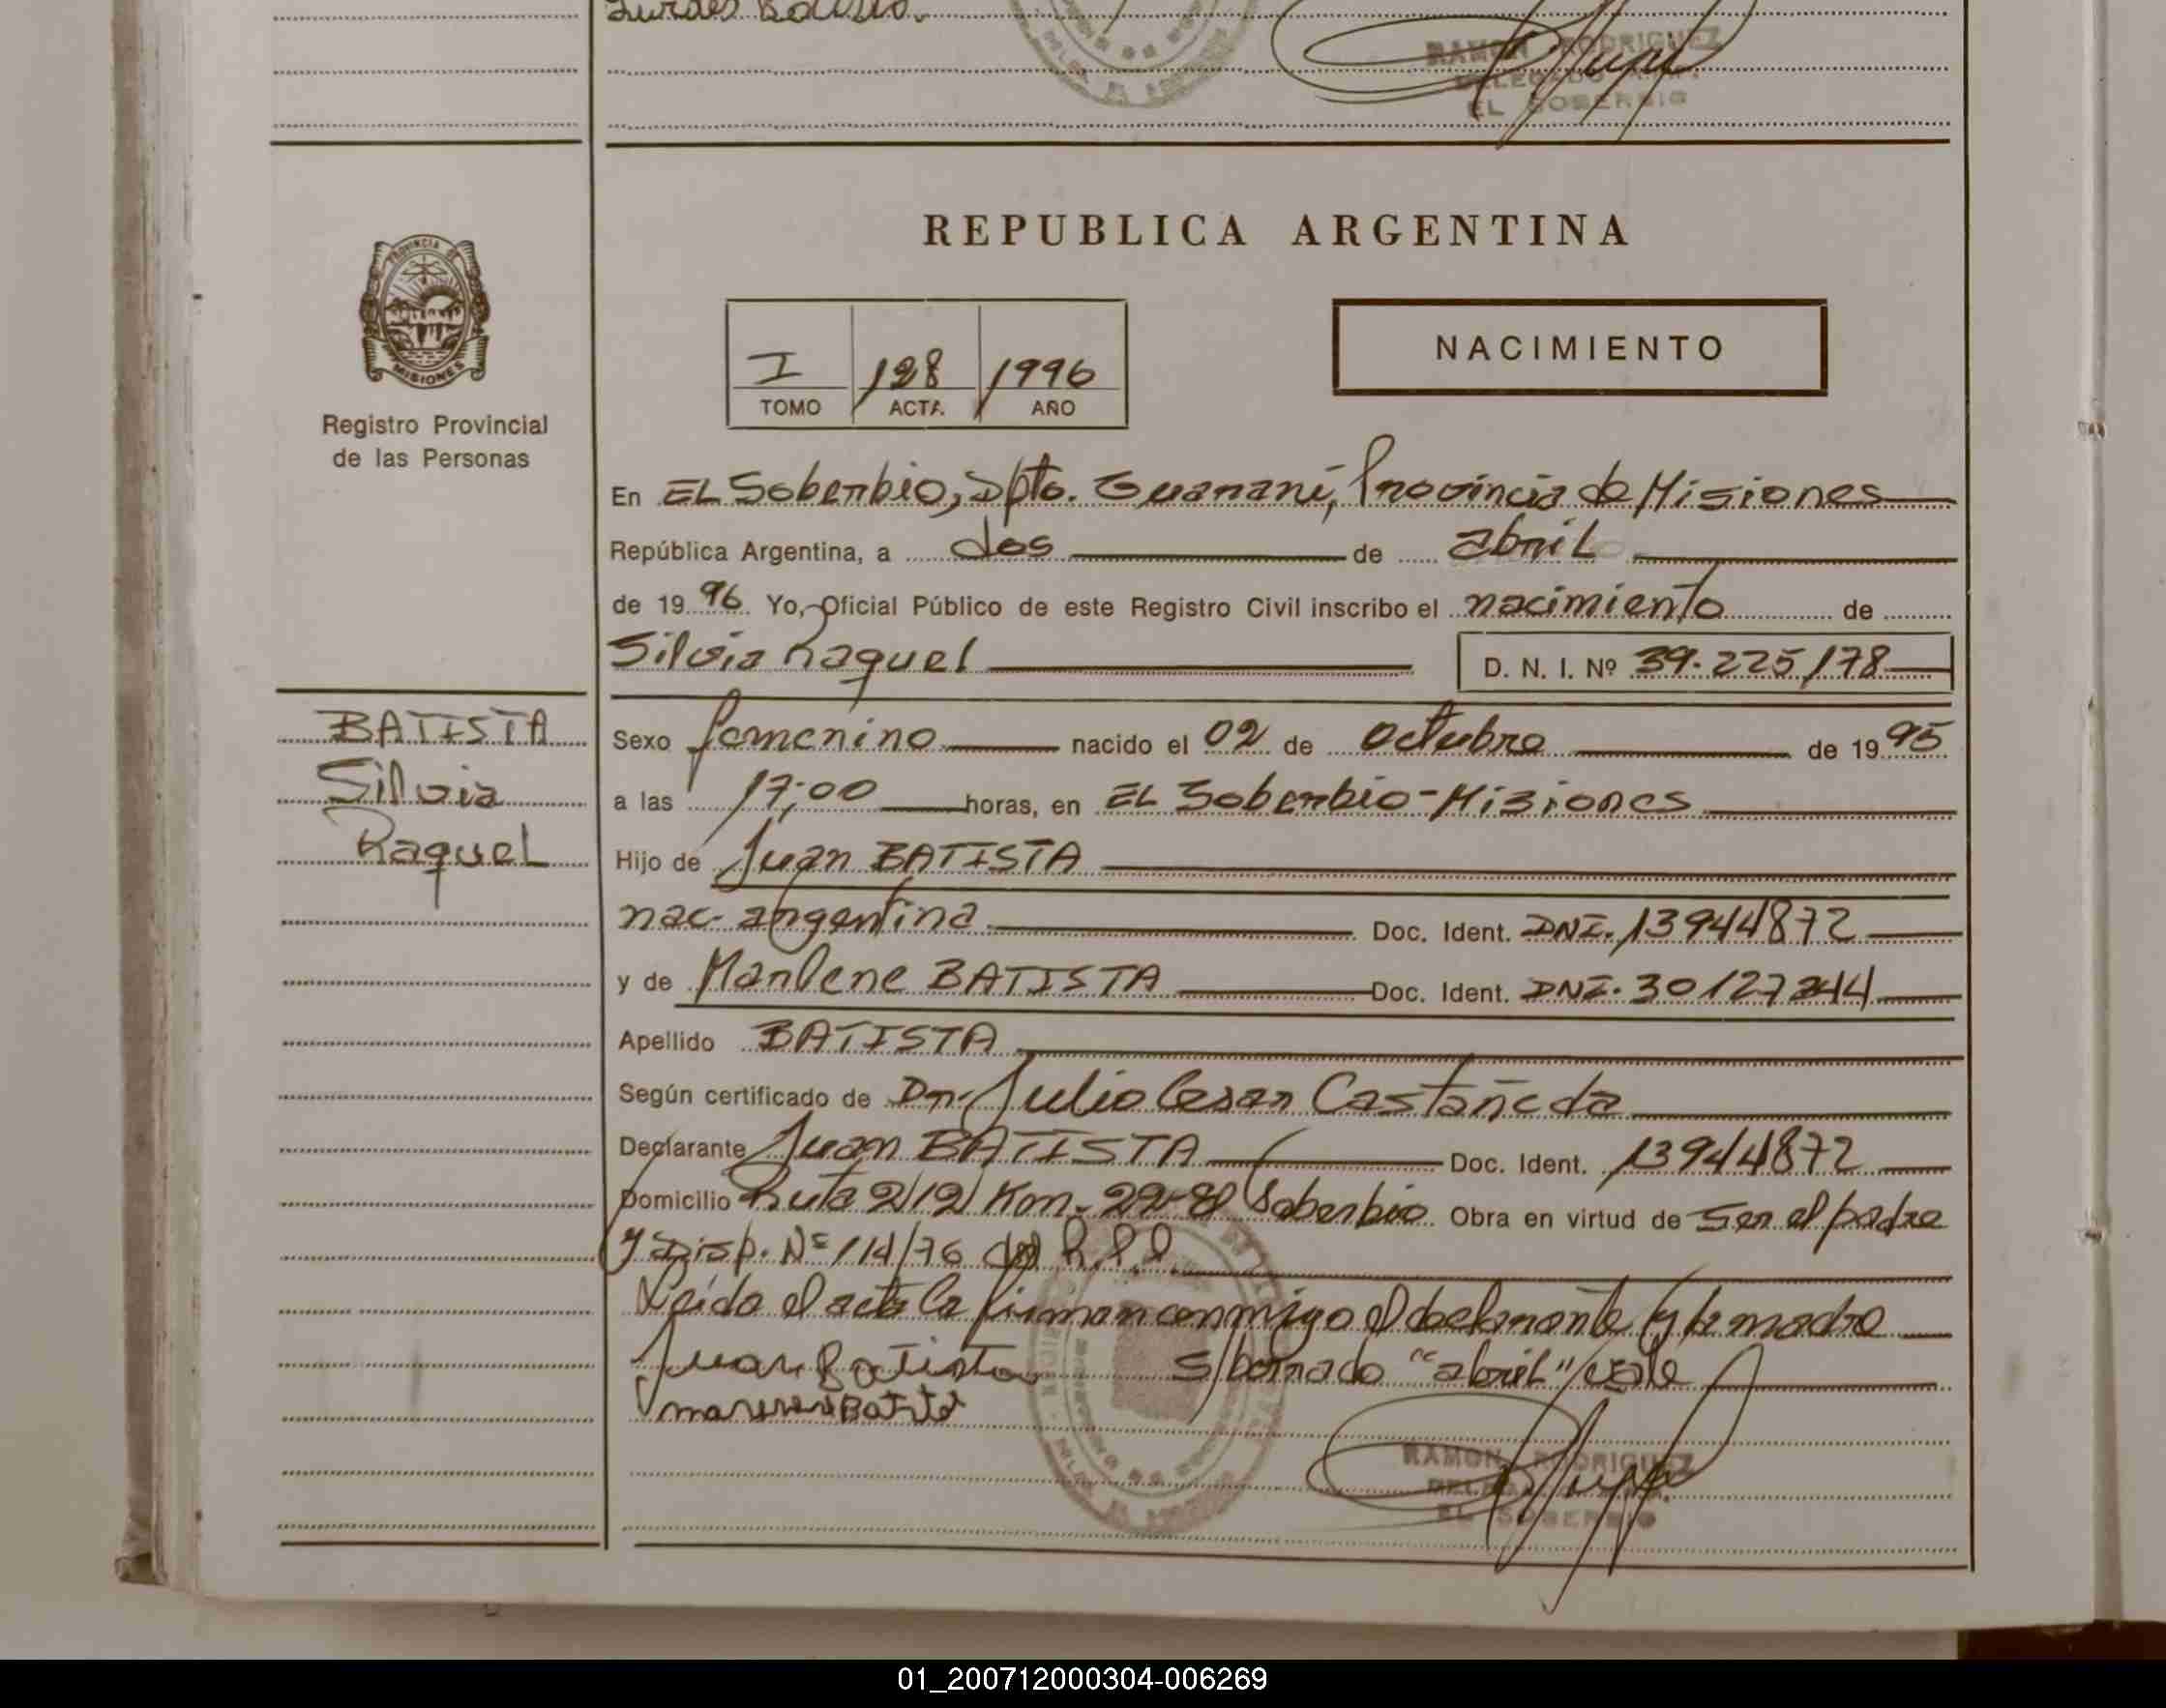 Lurdes Batista.
RAMON RODRIGUEZ
EL SOBERBIO
REPUBLICA ARGENTINA
PROVINCIA DE MISIONES
Registro Provincial
de las Personas
I 128 1996
TOMO ACTA AÑO
NACIMIENTO
En EL Soberbio, Dpto. Guaraní, Provincia de Misiones
República Argentina, a dos de abril
de 1996 Yo, Oficial Público de este Registro Civil inscribo el nacimiento de
Silvia Raquel D. N. I. Nº 39.225178
BATISTA
Silvia
Raquel
Sexo femenino nacido el 02 de Octubre de 1995
a las 17:00 horas, en EL Soberbio-Misiones
Hijo de Juan BATISTA
nac. argentina Doc. Ident. DNI. 13944872
y de Marlene BATISTA Doc. Ident. DNI. 30127244
Apellido BATISTA
Según certificado de Dr. Julio Cesar Castañeda
Declarante Juan BATISTA Doc. Ident. 13944872
Domicilio Ruta 212 Km. 22-El Soberbio Obra en virtud de Ser el padre
y Disp. Nº 114/76 del R.P.P.
Leído el acta la firman conmigo el declarante y la madre
Juan Batista S/borrado "abril" vale
RAMON RODRIGUEZ
EL SOBERBIO
01_200712000304-006269